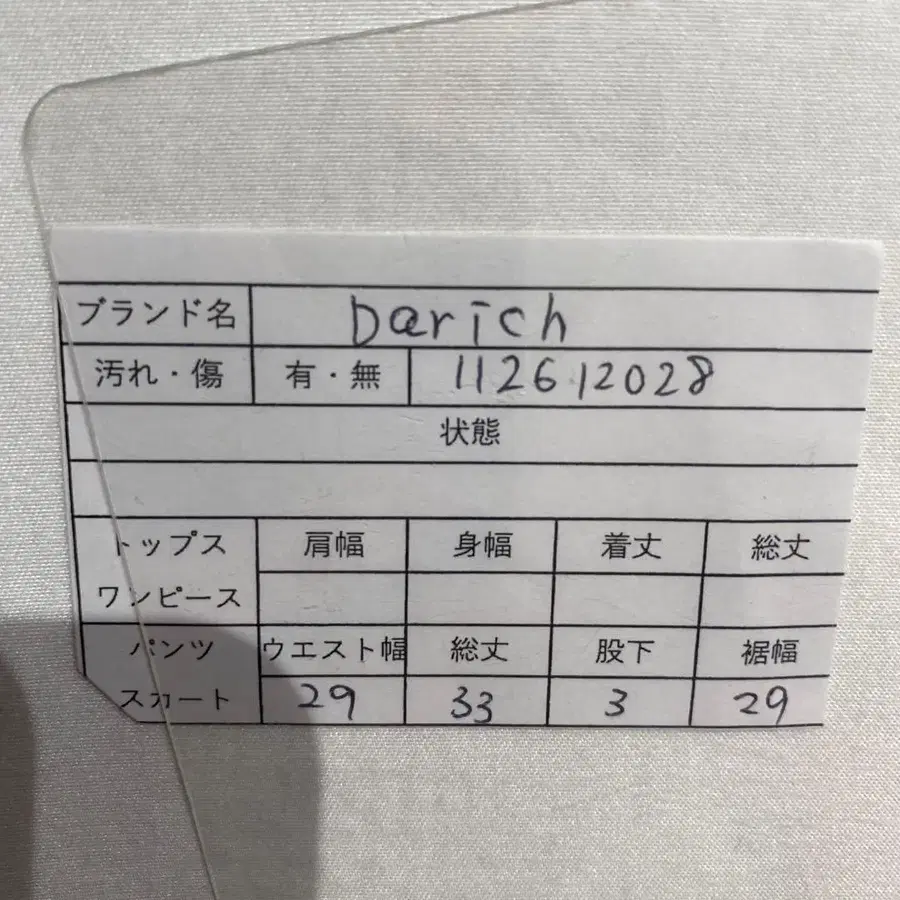 ブランド名 Darich
汚れ・傷 有・無 112612028
状態
トップス 肩幅 身幅 着丈 総丈
ワンピース
パンツ ウエスト幅 総丈 股下 裾幅
スカート 29 33 3 29